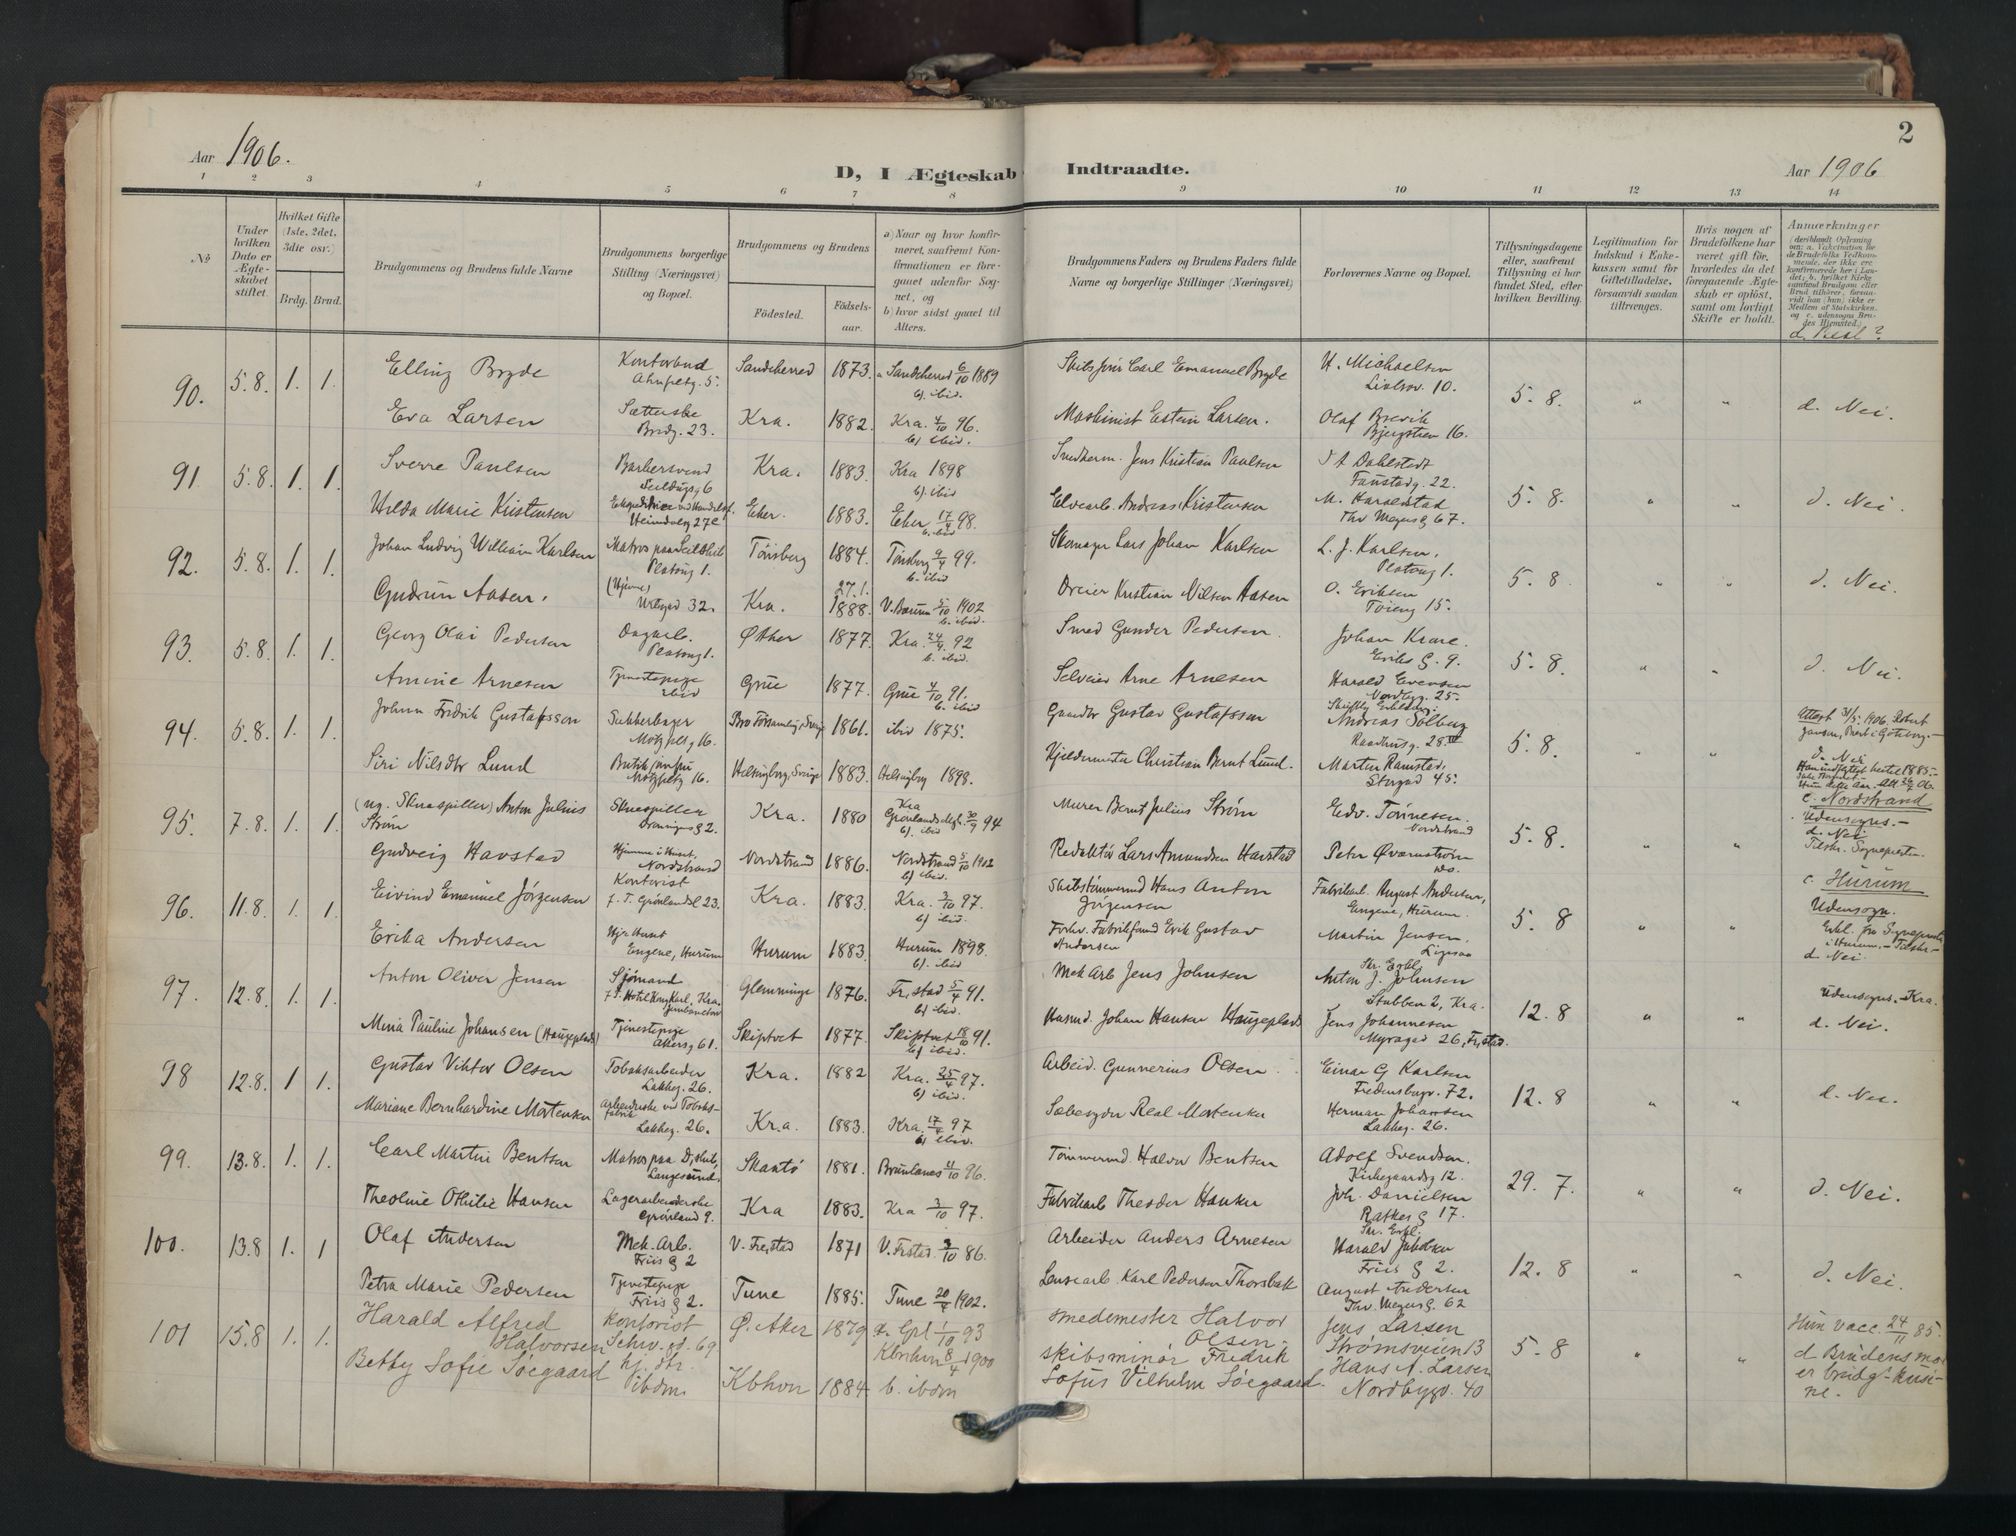 2
Aar 1906.
D, I Ægteskab Indtraadte.
Aar 1906
1 2 3 4 5 6 7 8 9 10 11 12 13 14
No
Under hvilken Dato er Ægteskabet stiftet.
Hvilket Gifte (1ste, 2det, 3die osv.)
Brdg. Brud.
Brudgommens og Brudens fulde Navne
Brudgommens borgerlige Stilling (Næringsvei) og Bopæl.
Brudgommens og Brudens
Fødested.
Fødselsaar.
a) Naar og hvor konfirmeret, saafremt Konfirmationen er foregaaet udenfor Sognet, og
b) hvor sidst gaaet til Alters.
Brudgommens Faders og Brudens Faders fulde Navne og borgerlige Stillinger (Næringsvei)
Forlovernes Navne og Bopæl.
Tillysningsdagene eller, saafremt Tillysning ei har fundet Sted, efter hvilken Bevilling.
Legitimation for Indskud i Enkekassen samt for Giftetilladelse, forsaavidt saadan tiltrænges.
Hvis nogen af Brudefolkene har været gift før, hvorledes da det foregaaende Ægteskab er opløst, samt om lovligt Skifte er holdt.
Anmærkninger
(deriblandt Oplysning om: a. Vaccination for de Brudefolks Vedkommende, der ikke ere konfirmerede her i Landet; b. hvilket Kirkesamfund Brudgom eller Brud tilhører, forsaavidt han (hun) ikke er Medlem af Statskirken, og c. udensogns Brudes Hjemsted.)
d. Besl?
90. 5.8. 1. 1. Elling Bryde Kontorbud Sandeherred 1873. a Sandeherred 6/10 1889 b). ibid. Carl Emanuel Bryde H. Michaelsen 10. 5. 8. " " d. Nei.
Eva Larsen 23. Kra. 1882. Kra. 96. b) ibid. Maskinist Eistein Larsen. Olaf Brevik 16.
91. 5.8. 1. 1. Sverre Paulsen Barbersvend Kra. 1883. Kra 1898 b). ibid Jens Kristian Paulsen Dahlstedt 22. 5. 8. " " d. Nei.
Hilda Marie Kristensen Eker. 1883. Eker 17/4 98. b. ibid Elvearb. Andreas Kristensen M. Haralstad Thv Meyersg 67.
92. 5.8. 1. 1. Johan Ludvig William Karlsen Matros paa Seilskib Platoug 1. Tönsberg 1884. Tönsberg 9/4 99. b. ibid Skomager Lars Johan Karlsen L. J. Karlsen. Platoug 1. 5. 8. " " d. Nei.
Gudrun Aasen. (Hjeme) Urtegad 32. Kra. 27.1. 1888. V. Bærum 5/10 1902 b. ibid. Dreier Kristian Nilsen Aasen O. Eriksen Töieng 15.
93. 5.8. 1. 1. Georg Olai Pedersen Dagarb. Platoug 1. 1877. Kra. 24/4 92 b. ibid. Smed Gunder Pedersen. Johan Krane. Eriks g. 9. 5. 8. " " d. Nei.
Amine Arnesen Tjenestepige ibid Grue 1877. Grue 4/10 91. b. ibid Selveier Arne Arnesen Harald Evensen Nordbyg. 25.
94. 5.8. 1. 1. Johan Fridrik Gustafsson Sukkerbager Motzfeltsg 16. Bro Församling, Sverige 1861. ibid 1875. Gaardbr Gustav Gustafsson Andreas Solberg Raadhusg. 28 5. 8. " " Attest 31/5. 1906.
Siri Nilsdtr Lund Motzfeltg 16. Helsingborg, Sverige 1883. Helsingborg 1898. Kjeldermester Christian Bernt Lund. Martin Ramstad. Storgad 45. d. Nei
95. 7.8. 1. 1. (ug. Skuespiller) Anton Julius Ström Skuespiller g 2. Kra. 1880 Kra Grønlands Mgh. 30/9 94 b). ibid Murer Bernt Julius Strøm Edv. Tönnesen. Nordstrand 5. 8. " " c. Nordstrand Udensogns.- d. Nei
Gudveig Havstad Hjemme i Huset, Nordstrand Nordstrand 1886. Nordstrand 5/10 1902 b) ibid. Redaktör Lars Amundsen Havstad Peter Qværnström do.
96. 11.8. 1. 1. Eivind Emanuel Jörgensen Kontorist f. T. Grönlandsl 23. Kra. 1883. Kra. 3/10 97. b) ibid Skibstömmermd Hans Anton Jörgensen Fabrikarb. August Andersen, Engene, Hurum. 5. 8 " " c. Hurum Udensogn.
Erika Andersen Hj. i Huset Engene, Hurum Hurum 1883. Hurum 1898. b). ibid Erik Gustav Andersen Martin Jensen. d. Nei.
97. 12.8. 1. 1. Anton Oliver Jensen Sjömand f. T. Hotel Kong Karl, Kra. Glemminge 1876. Fr.stad 5/4 91. b) ibid Mek Arb Jens Johnsen Skr. Erkl. Anton J. Johnsen Stubben 2, Kra. 12. 8 " " Udensogns.- Kra. d. Nei.
Mina Pauline Johansen (Haugeplads) Tjenestepige Akersg 61. Skiptvet 1877. Skiptvet 18/10 91. b) ibid. Husmd. Johan Hansen Haugeplads Jens Johannesen Myragad 26, Fr.stad.
98 12.8. 1 1. Gustav Viktor Olsen Tobaksarbeider Lakkeg. 26. Kra. 1882 Kra. 25/4 97. b) ibid. Arbeid. Gunnerius Olsen. Einar G Karlsen Fredensborgv. 72. 12. 8 " " d. Nei.
Mariane Bernhardine Mortensen Arbeiderske vid Tobaksfabrik Lakkeg. 26. Kra. 1883. Kra. 17/4 97 b) ibid. Real Mortensen Herman Johansen Lakkeg. 26.
99. 13.8. 1. 1. Carl Martin Bentsen Matros paa D,skib, Langesund. Skaatö 1881. Brunlanes 96. Tömmermd. Halvor Bentsen Adolf Svendsen. Kirkegaardsg 12. 29. 7. " " d. Nei.
Theoline Othilie Hansen Lagerarbeiderske Grönland 9. Kra 1883. Kra 3/10 97. Fabrikarb Theodor Hansen Joh. Danielsen Ratkes g 17.
100. 13.8 1. 1 Olaf Andersen Mek. Arb. Friis g 2 V. Fre,stad 1871 V. Frstad. 3/10 86. Arbeider Anders Arnesen Skr. Erkl. Harald Jakobsen Friis g 2. 12. 8 " " d. Nei.
Petra Marie Pedersen Tjenestepige Friis g 2. Tune 1885. Tune 20/4 1902. Karl Pedersen Thorsbæk August Andersen Thv. Meyersg. 62
101 15.8 1. 1. Harald Alfred Halvorsen Kontorist Schw. gd. 69 Ø. Aker 1879 1/10 93 Smedemester Halvor Olsen. Jens Larsen Strømsveien 13 5. 8 " " Hun vacc. 24/11 85.
Betty Sofie Söegaard hj. dtr. ibdm. Kbhvn 1884 Kbnhvn 8/4 1900 b. ibdm Skibsminör Fredrik Sofus Vilhelm Söegaard. Hans A. Larsen Nordbygd. 40 d Brudens mor er brudg-kusine.